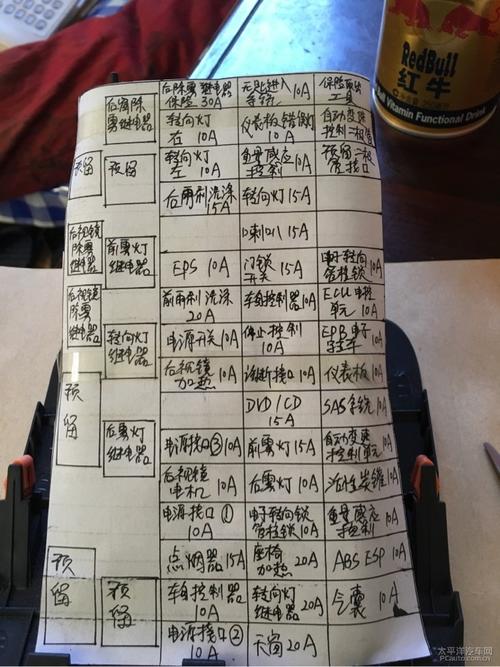 RedBull
红牛
Vitamin Functional Drink
后除雾继电器
保险 30A
无匙进入
10A
保险取出
工具
后窗除
雾继电器
转向灯
右 10A
仪表板
10A
自动变速
控制
预留
预留
转向灯
左 10A
控制
预留
后雨刮洗涤
15A
转向灯 15A
喇叭 15A
后视镜
除雾
继电器
前雾灯
继电器
EPS 10A
门锁
开关 15A
电子转向
管柱锁 10A
后视镜
除雾
继电器
前雨刮洗涤
20A
车身控制器 10A
ECU电控
单元 10A
转向灯
继电器
电源开关 10A
停止控制
10A
EPB电子
驻车
后视镜
加热 10A
诊断接口 10A
仪表板 10A
预
留
DVD/CD
15A
SAS系统 10A
后雾灯
继电器
电源接口③ 10A
前雾灯 15A
自动变速
控制单元 10A
后视镜
电机 10A
后雾灯 10A
活性炭罐 10A
电源接口①
10A
电子转向锁
管柱锁 10A
控制
10A
预
留
点烟器 15A
座椅
加热 20A
ABS ESP 10A
预
留
车身控制器
10A
转向灯
继电器 20A
气囊 10A
电源接口②
10A
天窗 20A
太平洋汽车网
PCauto.com.cn